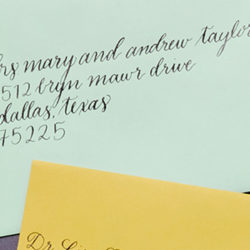 mary and andrew taylor
512 bryn mawr drive
dallas, texas
75225
Dr.